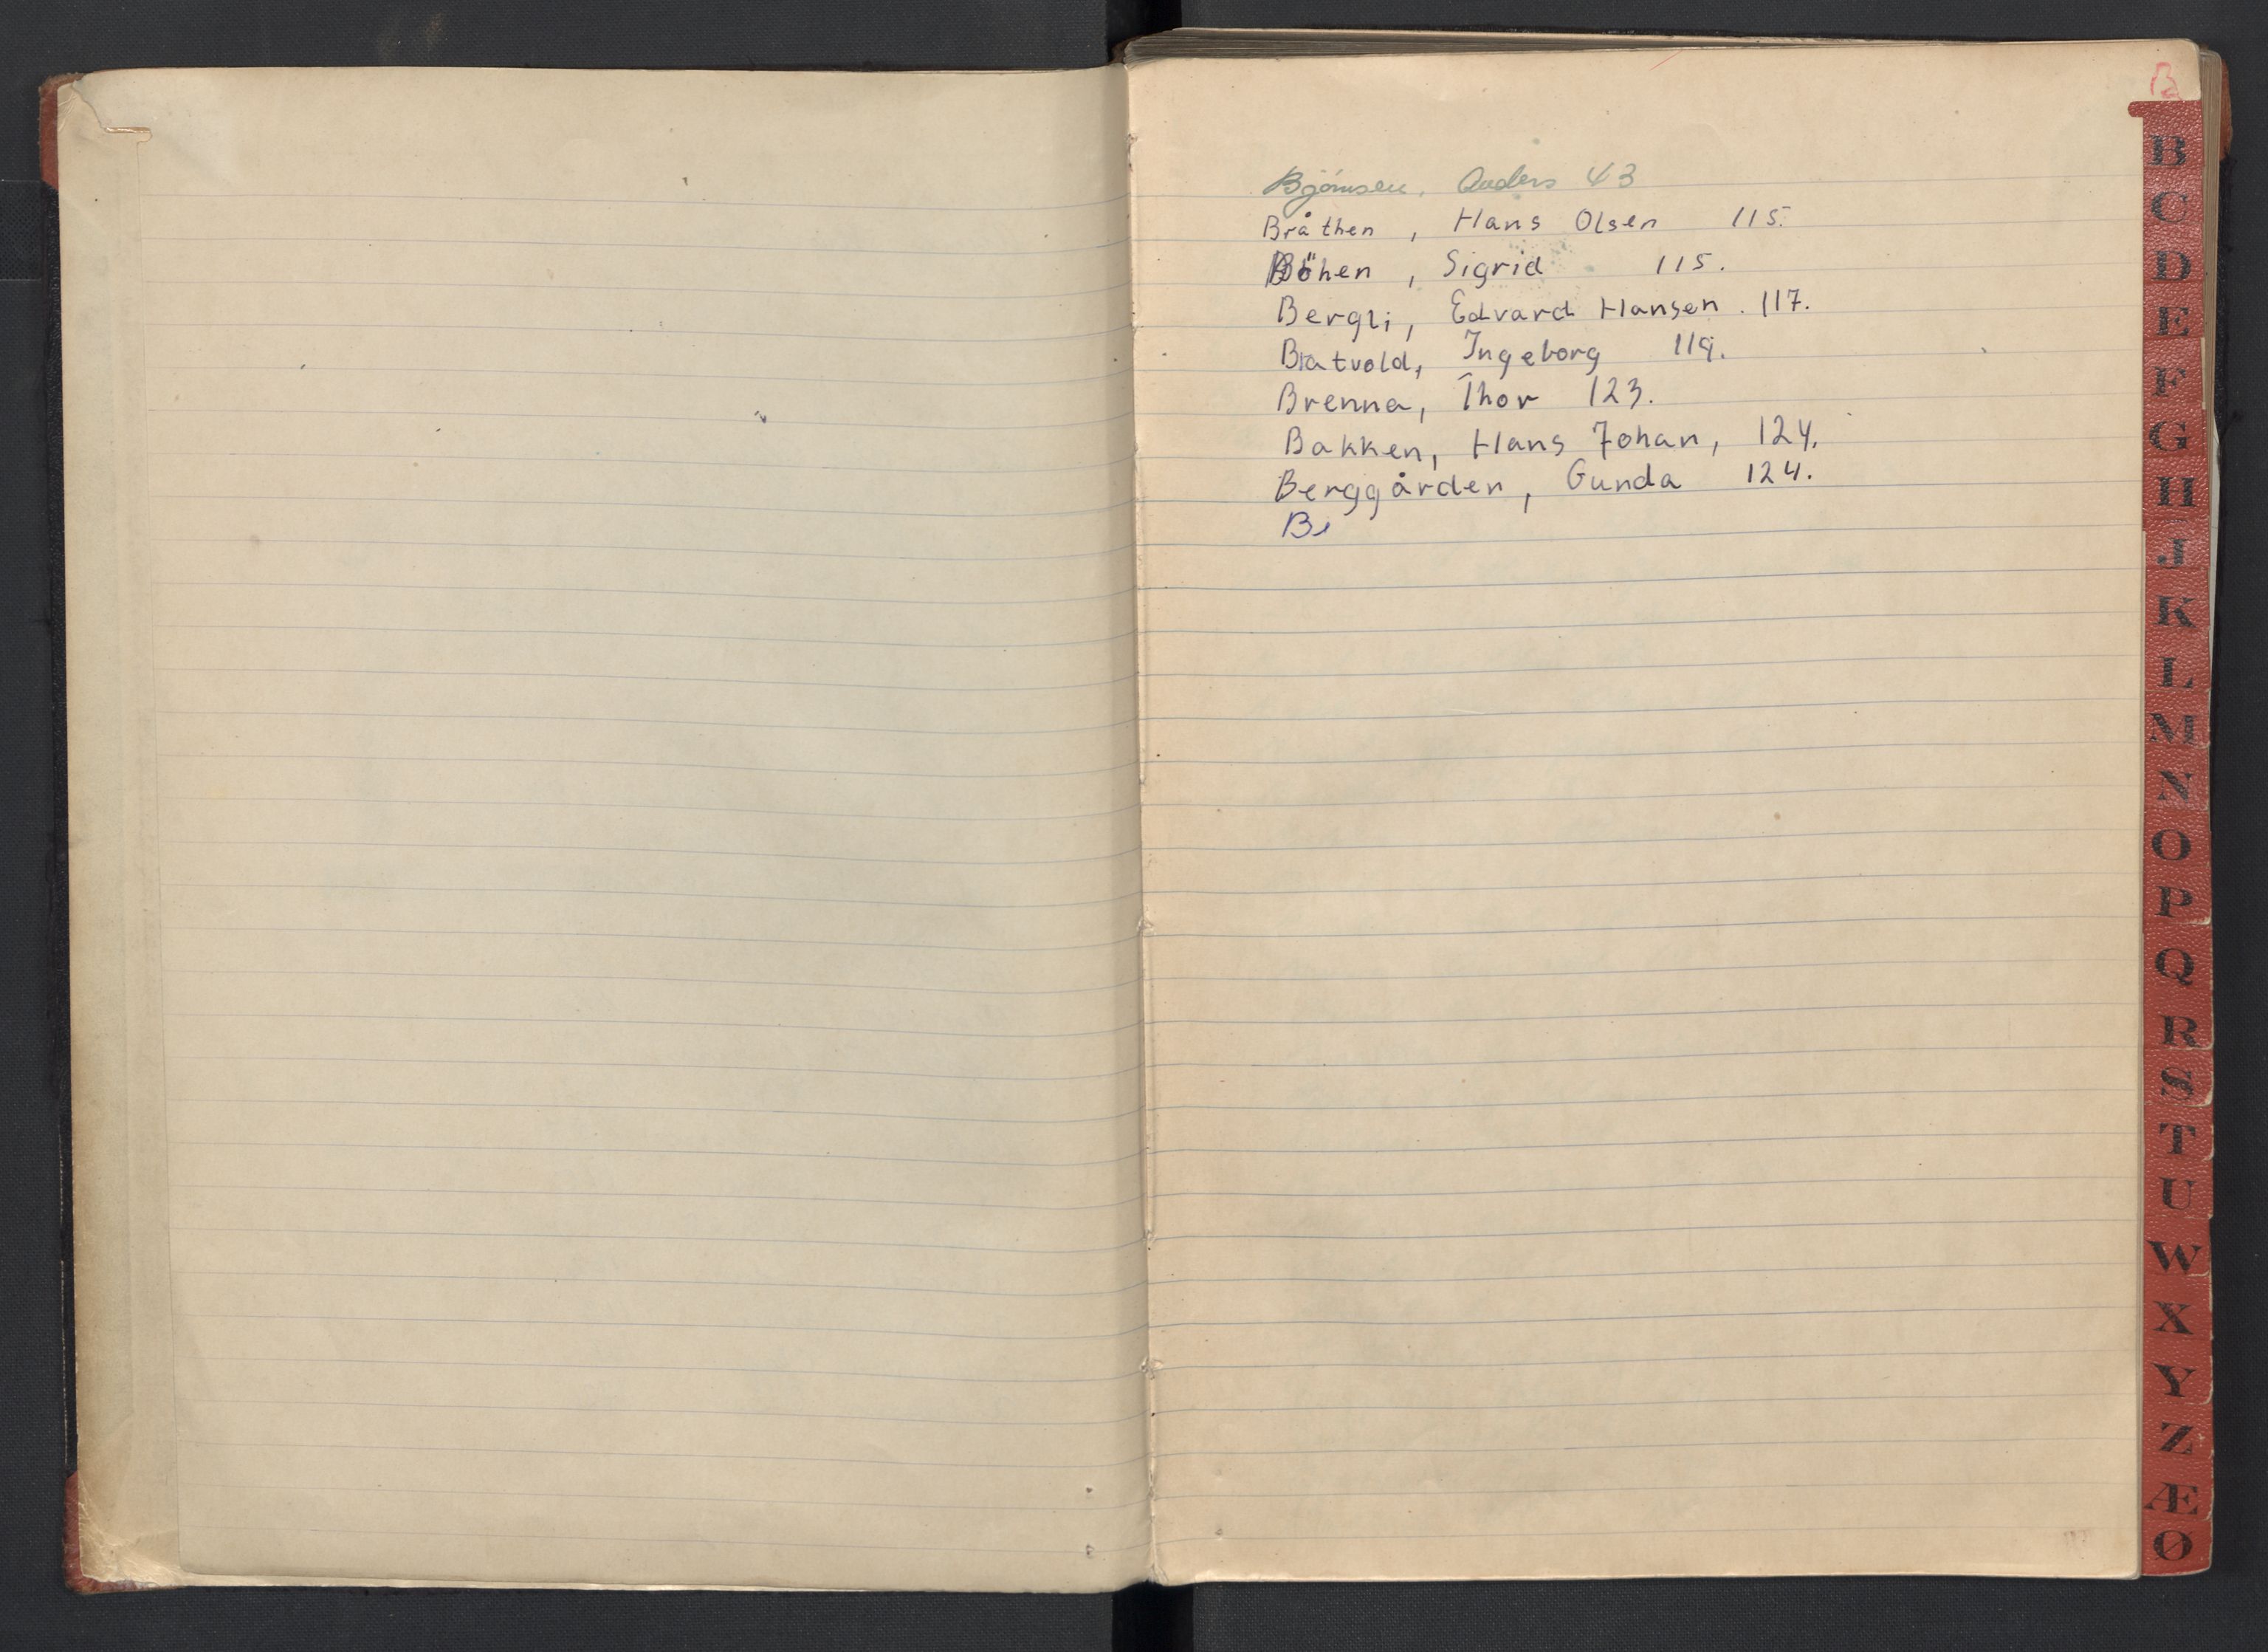 B
Björnsen, Anders 43
Bråthen, Hans Olsen 115.
Böhen, Sigrid 115.
Bergli, Edvard Hansen. 117.
Bratvold, Ingeborg 119.
Brenna, Thor 123.
Bakken, Hans Johan, 124.
Berggården, Gunda 124.
B
C
D
E
F
G
H
J
K
L
M
N
O
P
Q
R
S
T
U
W
X
Y
Z
Æ
Ø